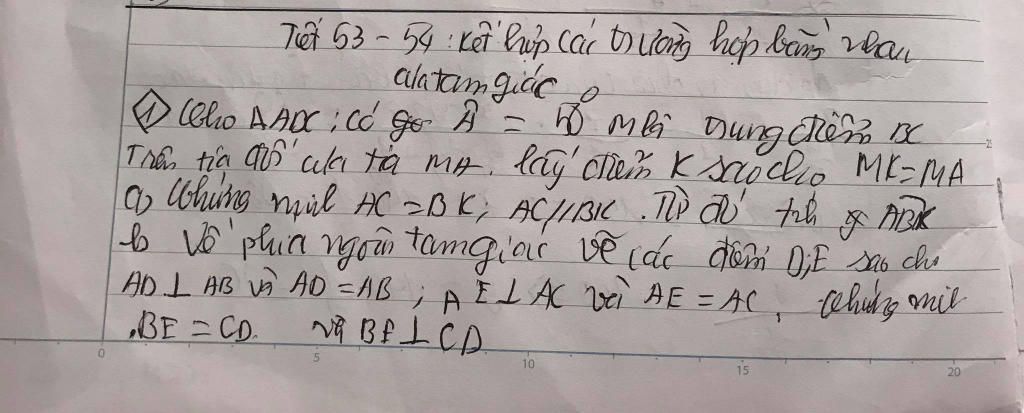 Tiết 53 - 54 : Kết hợp các trường hợp bằng nhau
của tam giác
① Cho ΔABC ; có góc Â = M là trung điểm BC
Trên tia đối của tia MA. lấy điểm K sao cho MK = MA
a, Chứng minh AC = BK ; AC // BK . Từ đó tính góc ABK
b Về phía ngoài tam giác vẽ các điểm D;E sao cho
AD ⊥ AB và AD = AB ; AE ⊥ AC và AE = AC , Chứng minh
BE = CD. và BE ⊥ CD
0 5 10 15 20